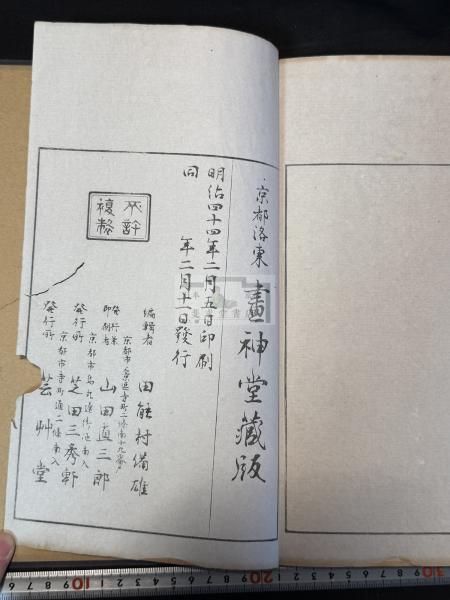 京都洛東 畫神堂藏版
明治四十四年二月五日印刷
同 年二月十二日發行
不許
複製
編輯者 田能村備雄
京都市
發行兼
印刷者 山田直三郎
京都市烏丸通
發行所 芝田三秀軒
京都市寺町通二條南入
發行所 芸艸堂